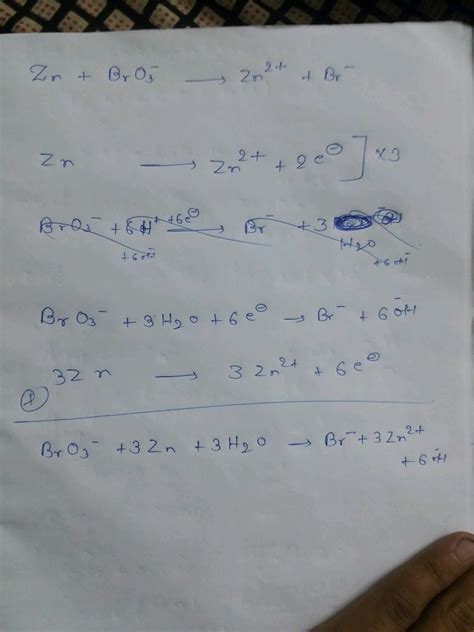 Zn + BrO3⁻ ⟶ Zn²⁺ + Br⁻
Zn ⟶ Zn²⁺ + 2e⊖ ] ×3
BrO3⁻ + 6H⁺ +6e⊖ ⟶ Br⁻ + 3 H2O
+6OH⁻ +6OH⁻
BrO3⁻ + 3H2O + 6e⊖ ⟶ Br⁻ + 6OH⁻
3Zn ⟶ 3Zn²⁺ + 6e⊖
BrO3⁻ + 3Zn + 3H2O ⟶ Br⁻ + 3Zn²⁺
+ 6OH⁻